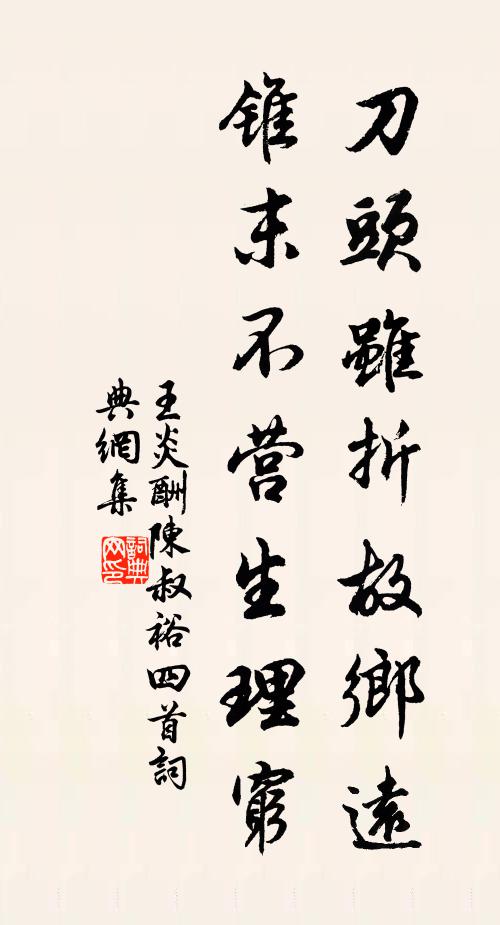 刀頭雖折故鄉遠
錐末不营生理窮
王炎酬陳叔裕四首詞
典網集
詞典
网印